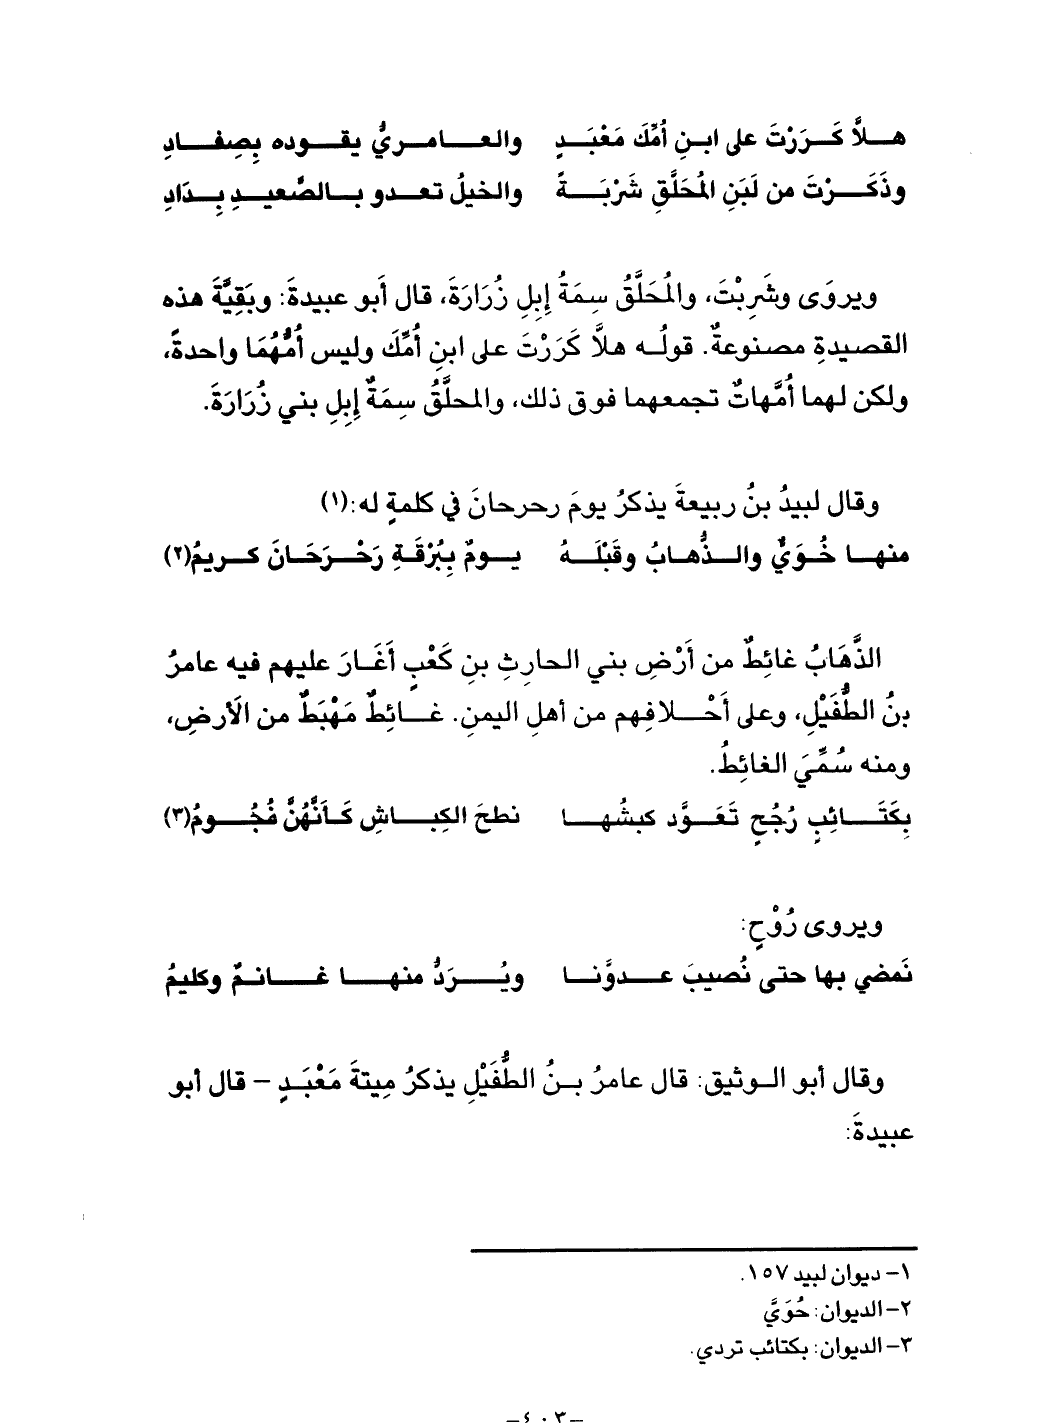 هلاَّ كَرَرْتَ على ابنِ أُمِّكَ مَعْبَدٍ والعامريُّ يقوده بِصِفادِ
وذَكَرْتَ من لَبَنِ المُحَلَّقِ شَرْبَةً والخيلُ تعدو بالصَّعيدِ بِدَادِ
ويروَى وشَرِبْتَ، والمُحَلَّقُ سِمَةُ إِبِلِ زُرَارَةَ، قال أَبو عبيدةَ: وبَقِيَّةَ هذه
القصيدةِ مصنوعةٌ. قولُه هلاَّ كَرَرْتَ على ابنِ أُمِّكَ وليس أُمُّهُمَا واحدةً،
ولكن لهما أُمَّهاتٌ تجمعهما فوق ذلك، والمحلَّقُ سِمَةٌ إِبِلِ بني زُرَارَةَ.
وقال لبيدُ بنُ ربيعةَ يذكرُ يومَ رحرحانَ في كلمةٍ له:(١)
منها خُوَيٌّ والذُّهابُ وقَبْلَهُ يومٌ بِبُرْقَةِ رَحْرَحَانَ كريمُ(٢)
الذَّهَابُ غائِطٌ من أَرْضِ بني الحارثِ بنِ كَعْبٍ أَغَارَ عليهم فيه عامرُ
بنُ الطُّفَيْلِ، وعلى أَحْلافِهم من أهلِ اليمنِ. غائِطٌ مَهْبَطٌ من الأَرضِ،
ومنه سُمِّيَ الغائِطُ.
بِكَتَائِبٍ رُجُحٍ تَعَوَّد كبشُها نطحَ الكِباشِ كَأَنَّهُنَّ نُجُومُ(٣)
ويروى رُوْحٍ:
نَمضي بها حتى نُصيبَ عدوَّنا ويُرَدُّ منها غانمٌ وكليمُ
وقال أبو الوثيق: قال عامرُ بنُ الطُّفَيْلِ يذكرُ مِيتةَ مَعْبَدٍ – قال أبو
عبيدةَ:
١– ديوان لبيد ١٥٧.
٢– الديوان: حُوَيَّ
٣– الديوان: بكتائب تردي.
–٤٠٣–